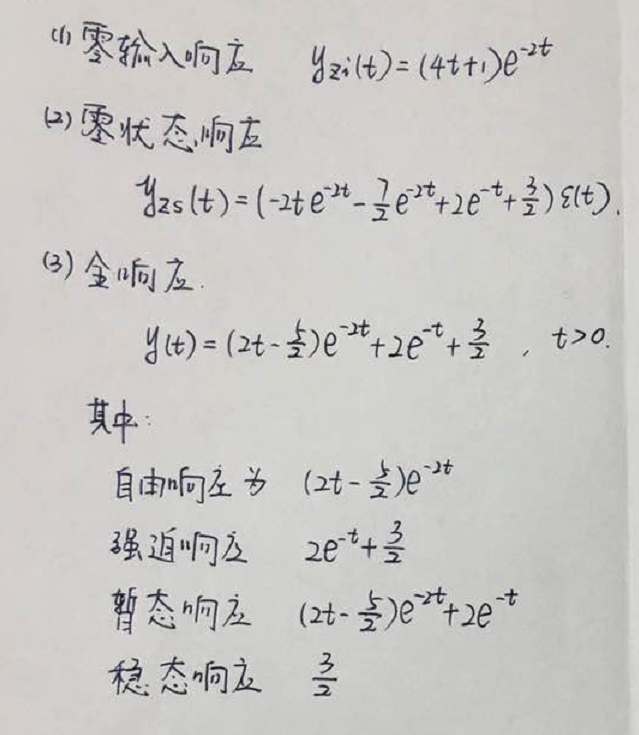 (1) 零输入响应 y_{zi}(t)=(4t+1)e^{-2t}
(2) 零状态响应
y_{zs}(t)=(-2te^{-2t}-\frac{7}{2}e^{-2t}+2e^{-t}+\frac{3}{2})ε(t).
(3) 全响应.
y(t)=(2t-\frac{5}{2})e^{-2t}+2e^{-t}+\frac{3}{2} , t>0.
其中:
自由响应为 (2t-\frac{5}{2})e^{-2t}
强迫响应 2e^{-t}+\frac{3}{2}
暂态响应 (2t-\frac{5}{2})e^{-2t}+2e^{-t}
稳态响应 \frac{3}{2}